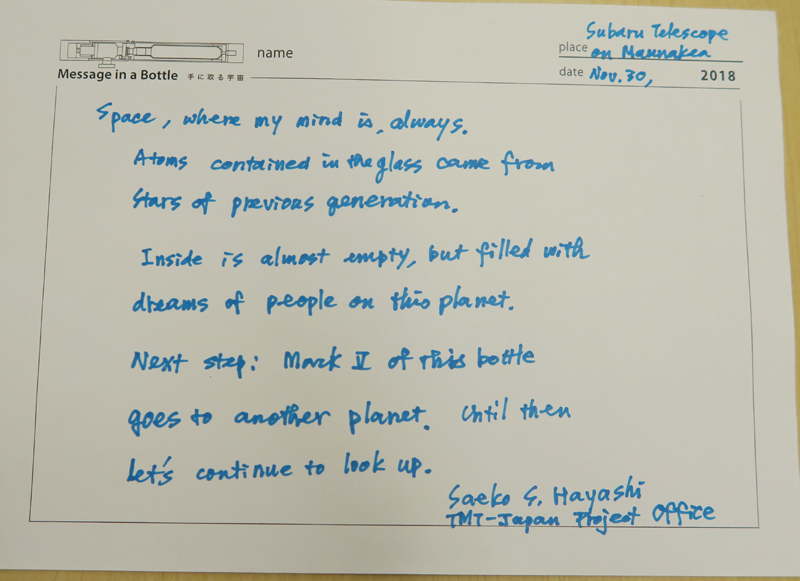 name
Message in a Bottle 手に取る宇宙
place Subaru Telescope
on Maunakea
date Nov. 30, 2018
Space, where my mind is, always.
Atoms contained in the glass came from
stars of previous generation.
Inside is almost empty, but filled with
dreams of people on this planet.
Next step: Mark V of this bottle
goes to another planet. Until then
let's continue to look up.
Saeko S. Hayashi
TMT-Japan Project Office